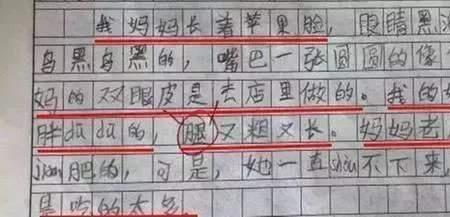 我妈妈长着苹果脸，眼睛黑
乌黑乌黑的，嘴巴一张圆圆的像
妈的双眼皮是去店里做的。我的
胖dūdū的，腿又粗又长。妈妈老
jiǎn肥的，可是，她一直shòu不下来，
是吃的太多